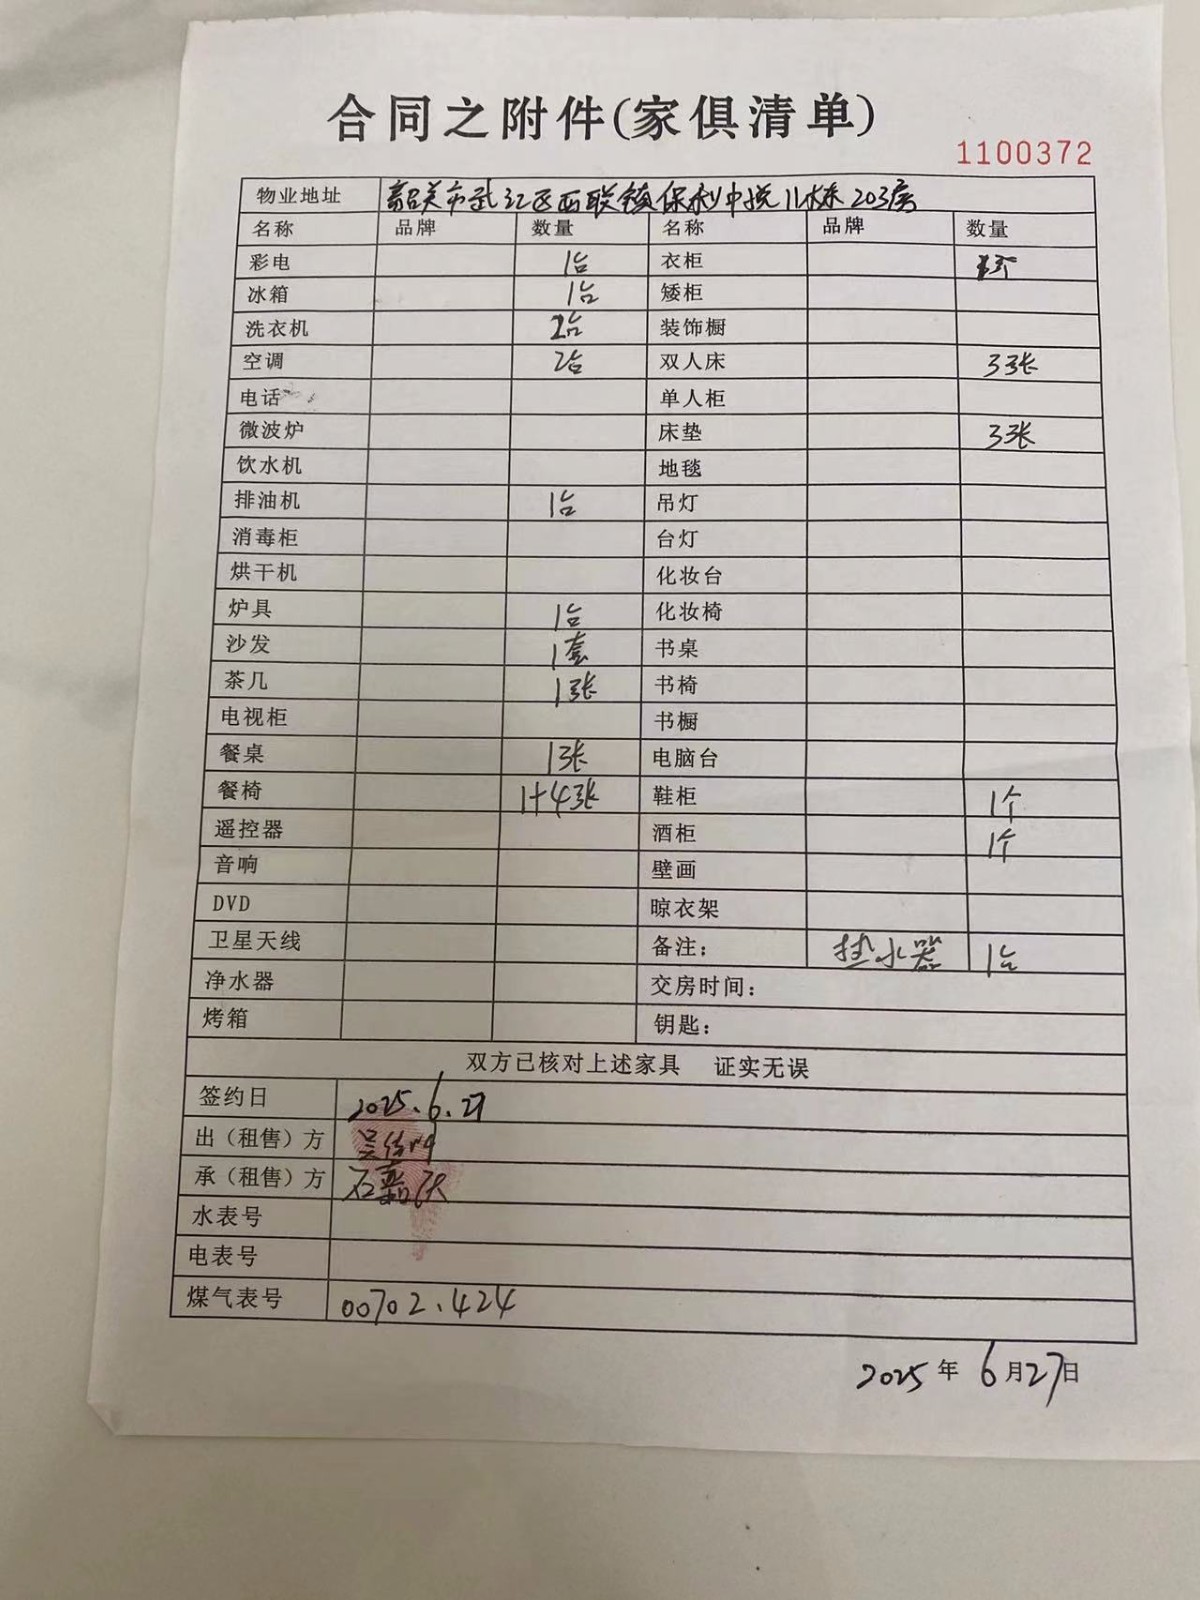 合同之附件(家俱清单)
1100372
物业地址 韶关市武江区西联镇保利中悦11栋203房
名称 品牌 数量 名称 品牌 数量
彩电 1台 衣柜
冰箱 1台 矮柜
洗衣机 2台 装饰橱
空调 2台 双人床 3张
电话 单人柜
微波炉 床垫 3张
饮水机 地毯
排油机 1台 吊灯
消毒柜 台灯
烘干机 化妆台
炉具 1台 化妆椅
沙发 1套 书桌
茶几 1张 书椅
电视柜 书橱
餐桌 1张 电脑台
餐椅 1+4张 鞋柜 1个
遥控器 酒柜 1个
音响 壁画
DVD 晾衣架
卫星天线 备注： 热水器 1台
净水器 交房时间：
烤箱 钥匙：
双方已核对上述家具 证实无误
签约日 2025.6.27
出（租售）方
承（租售）方 石嘉
水表号
电表号
煤气表号 00702.424
2025年6月27日